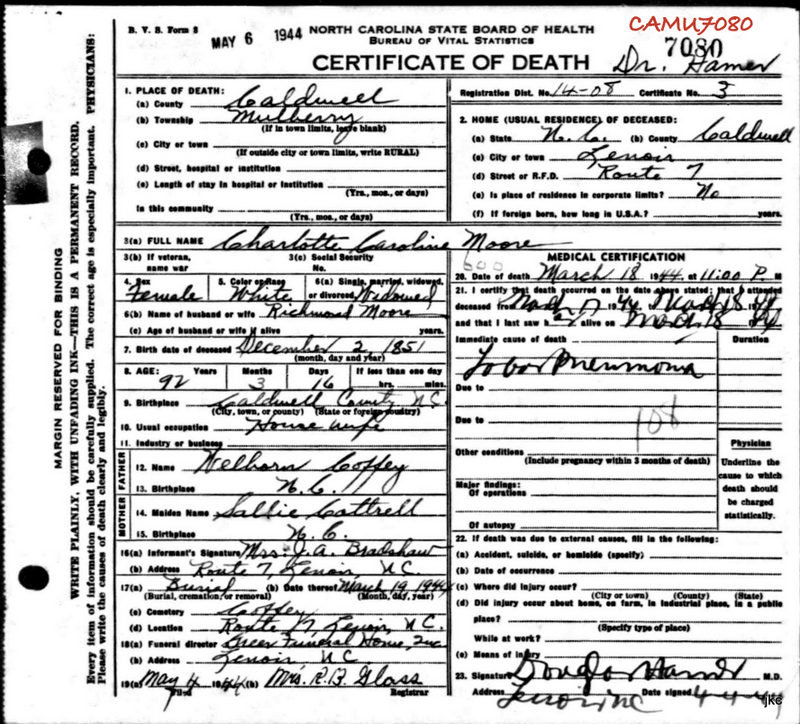 CAMU7080
B. V. S. Form 8
MAY 6 1944
NORTH CAROLINA STATE BOARD OF HEALTH
BUREAU OF VITAL STATISTICS
7080
CERTIFICATE OF DEATH
Dr. Hamer
MARGIN RESERVED FOR BINDING
WRITE PLAINLY, WITH UNFADING INK—THIS IS A PERMANENT RECORD.
Every item of information should be carefully supplied. The correct age is especially important. PHYSICIANS:
Please write the causes of death clearly and legibly.
1. PLACE OF DEATH:
(a) County Caldwell
(b) Township Mulberry
(If in town limits, leave blank)
(c) City or town
(If outside city or town limits, write RURAL)
(d) Street, hospital or institution
(e) Length of stay in hospital or institution
(Yrs., mos., or days)
In this community
(Yrs., mos, or days)
Registration Dist. No. 14-08 Certificate No. 3
2. HOME (USUAL RESIDENCE) OF DECEASED:
(a) State N.C. (b) County Caldwell
(c) City or town Lenoir
(d) Street or R.F.D. Route 7
(e) Is place of residence in corporate limits? No
(f) If foreign born, how long in U.S.A.? years.
3(a) FULL NAME Charlotte Caroline Moore
3(b) If veteran, name war
3(c) Social Security No.
4. Sex Female
5. Color or Race White
6(a) Single, married, widowed, or divorced, Widowed
6(b) Name of husband or wife Richmond Moore
(c) Age of husband or wife if alive years.
7. Birth date of deceased December 2, 1851
(month, day and year)
8. AGE: Years Months Days If less than one day
92 3 16 hrs. mins.
9. Birthplace Caldwell County N.C.
(City, town, or county) (State or foreign country)
10. Usual occupation House wife
11. Industry or business
FATHER
12. Name Welborn Coffey
13. Birthplace N.C.
MOTHER
14. Maiden Name Sallie Cottrell
15. Birthplace N.C.
16(a) Informant's Signature Mrs. J.A. Bradshaw
(b) Address Route 7, Lenoir, N.C.
17(a) Burial (b) Date thereof March 19 1944
(Burial, cremation or removal) (Month, day, year)
(c) Cemetery Coffey
(d) Location Route 7, Lenoir, N.C.
18(a) Funeral director Greer Funeral Home, Inc
(b) Address Lenoir NC
19(a) May 4 1944 (b) Mrs. R.B. Glass
Filed Registrar
MEDICAL CERTIFICATION
20. Date of death March 18 1944 at 11:00 P. M
21. I certify that death occurred on the date above stated; that I attended
deceased from March 17 1944 March 18 44
and that I last saw her alive on March 18 44
Immediate cause of death Duration
Lobar Pneumonia
Due to
108
Due to
Other conditions
(Include pregnancy within 3 months of death)
Major findings:
Of operations
Of autopsy
Physician
Underline the cause to which death should be charged statistically.
22. If death was due to external causes, fill in the following:
(a) Accident, suicide, or homicide (specify)
(b) Date of occurrence
(c) Where did injury occur?
(City or town) (County) (State)
(d) Did injury occur about home, on farm, in industrial place, in a public
place?
(Specify type of place)
While at work?
(e) Means of injury
23. Signature Douglas Hamer M.D.
Address Lenoir NC Date signed 4-4-44
jkc